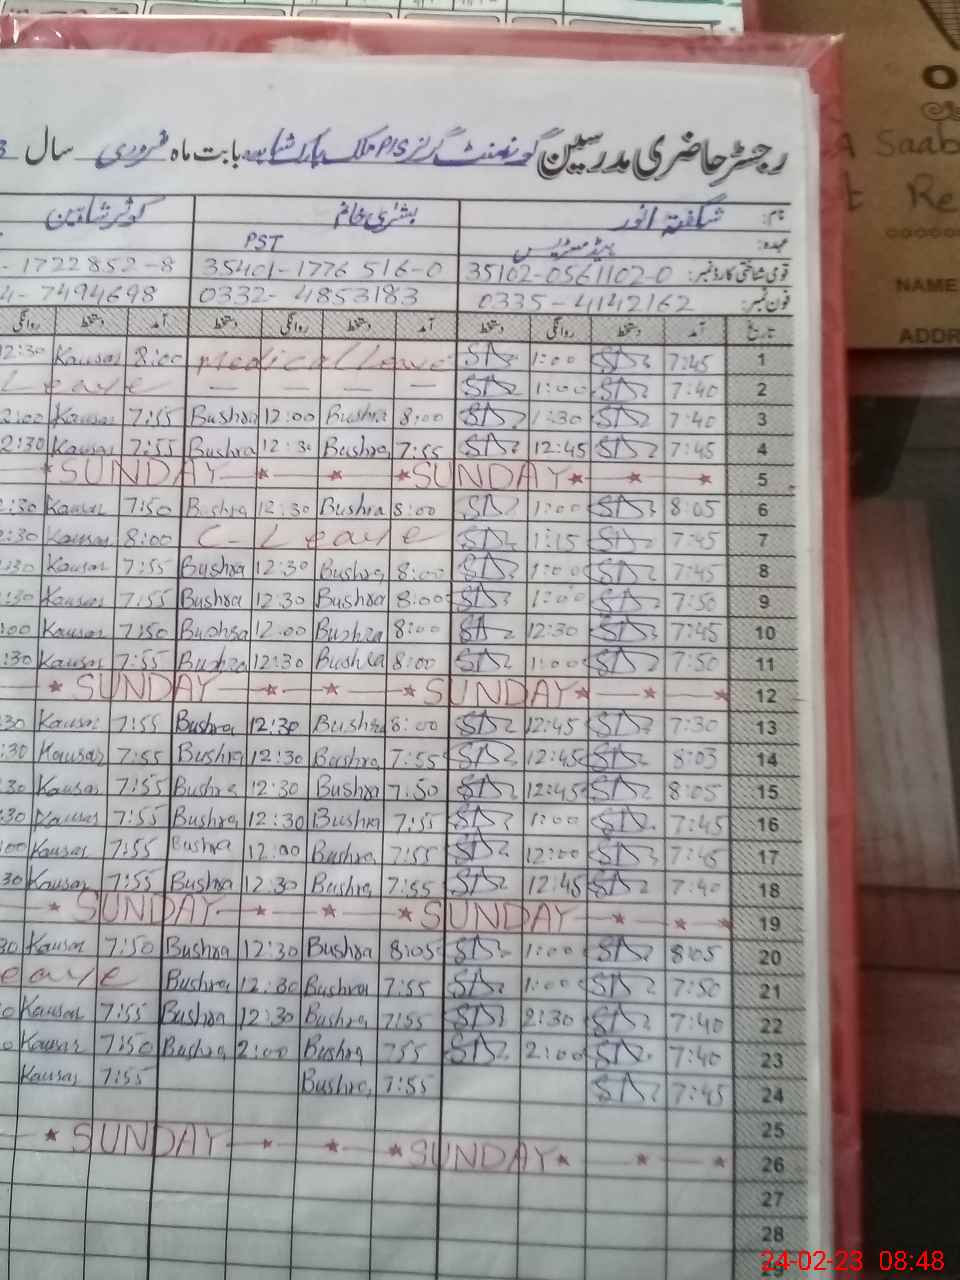 رجسٹر حاضری مدرسین گورنمنٹ گرلز P/S بابت ماہ فروری سال 3
نام: شگفتہ انور بشریٰ خانم کوثر شاہین
عہدہ: ہیڈ مسٹریس PST
قومی شناختی کارڈ نمبر: 35102-0561102-0 35401-1776516-0 -1722852-8
فون نمبر: 0335-4142162 0332-4853183 4-7494698
تاریخ آمد دستخط روانگی دستخط آمد دستخط روانگی دستخط آمد دستخط روانگی
12:30 Kausar 8:00 medical leave 1:00 7:45 1
Leave — — — — 1:00 7:40 2
2:00 Kausar 7:55 Bushra 12:00 Bushra 8:00 1:30 7:40 3
2:30 Kausar 7:55 Bushra 12:30 Bushra 7:55 12:45 7:45 4
SUNDAY SUNDAY 5
:30 Kausar 7:50 Bushra 12:30 Bushra 8:00 1:00 8:05 6
2:30 Kausar 8:00 C-Leave 1:15 7:45 7
:30 Kausar 7:55 Bushra 12:30 Bushra 8:00 1:00 7:45 8
:30 Kausar 7:55 Bushra 12:30 Bushra 8:00 1:00 7:50 9
:00 Kausar 7:50 Bushra 12:00 Bushra 8:00 12:30 7:45 10
:30 Kausar 7:55 Bushra 12:30 Bushra 8:00 1:00 7:50 11
SUNDAY SUNDAY 12
30 Kausar 7:55 Bushra 12:30 Bushra 8:00 12:45 7:30 13
:30 Kausar 7:55 Bushra 12:30 Bushra 7:55 12:45 8:03 14
30 Kausar 7:55 Bushra 12:30 Bushra 7:50 12:45 8:05 15
:30 Kausar 7:55 Bushra 12:30 Bushra 7:55 1:00 7:45 16
:00 Kausar 7:55 Bushra 12:00 Bushra 7:55 12:00 7:45 17
30 Kausar 7:55 Bushra 12:30 Bushra 7:55 12:45 7:40 18
SUNDAY SUNDAY 19
30 Kausar 7:50 Bushra 12:30 Bushra 8:05 1:00 8:05 20
eave Bushra 12:30 Bushra 7:55 1:00 7:50 21
0 Kausar 7:55 Bushra 12:30 Bushra 7:55 2:30 7:40 22
0 Kausar 7:50 Bushra 2:00 Bushra 755 2:00 7:40 23
Kausar 7:55 Bushra 7:55 7:45 24
25
SUNDAY SUNDAY 26
27
28
29
O
A Saab
t Re
NAME
ADDR
24-02-23 08:48